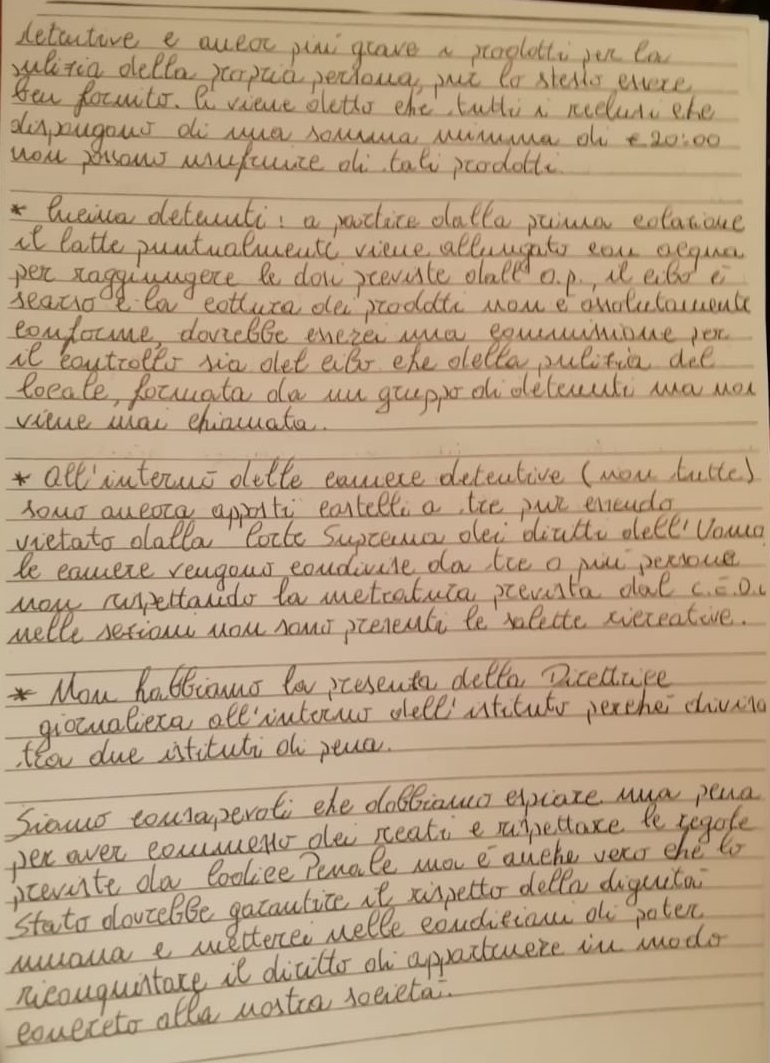 detentive e ancor più grave i prodotti per la
pulizia della propria persona, pur lo stesso essere
ben fornito. Ci viene detto che tutti i reclusi che
dispongono di una somma minima di € 20:00
non possono usufruire di tali prodotti.
* Cucina detenuti: a partire dalla prima colazione
il latte puntualmente viene allungato con acqua
per raggiungere le dosi previste dall' o.p., il cibo è
scarso e la cottura dei prodotti non è assolutamente
conforme, dovrebbe esserci una commissione per
il controllo sia del cibo che della pulizia del
locale, formata da un gruppo di detenuti ma non
viene mai chiamata.
* All'interno delle camere detentive (non tutte)
sono ancora apposti castelli a tre pur essendo
vietato dalla Corte Suprema dei diritti dell'Uomo,
le camere vengono condivise da tre o più persone
non rispettando la metratura prevista dal C.E.D.U
nelle sezioni non sono presenti le salette ricreative.
* Non habbiamo la presenza della Direttrice
giornaliera all'interno dell'istituto perchè divisa
tra due istituti di pena.
Siamo consapevoli che dobbiamo espiare una pena
per aver commesso dei reati e rispettare le regole
previste da Codice Penale ma è anche vero che lo
Stato dovrebbe garantire il rispetto della dignità
umana e metterci nelle condizioni di poter
riconquistare il diritto di appartenere in modo
concreto alla nostra società.